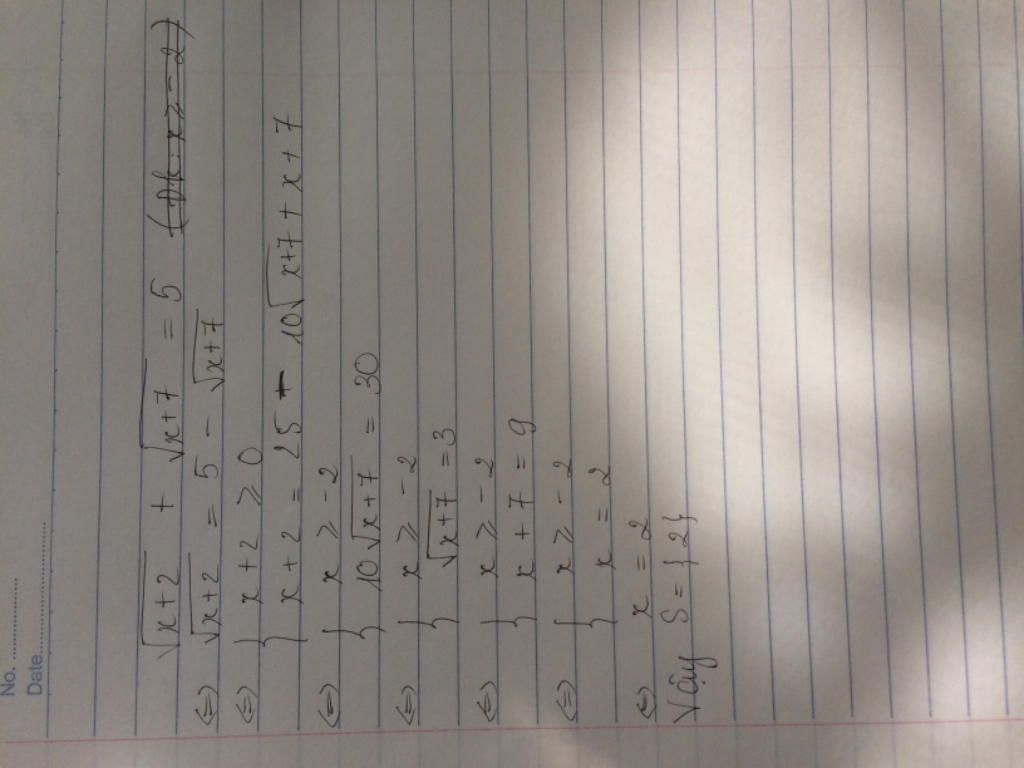 No. ..................
Date..............................
√(x+2) + √(x+7) = 5 (đk: x ≥ -2)
⇔ √(x+2) = 5 - √(x+7)
⇔ { x + 2 ≥ 0
x + 2 = 25 - 10√(x+7) + x + 7
⇔ { x ≥ -2
10√(x+7) = 30
⇔ { x ≥ -2
√(x+7) = 3
⇔ { x ≥ -2
x + 7 = 9
⇔ { x ≥ -2
x = 2
⇔ x = 2
Vậy S = {2}